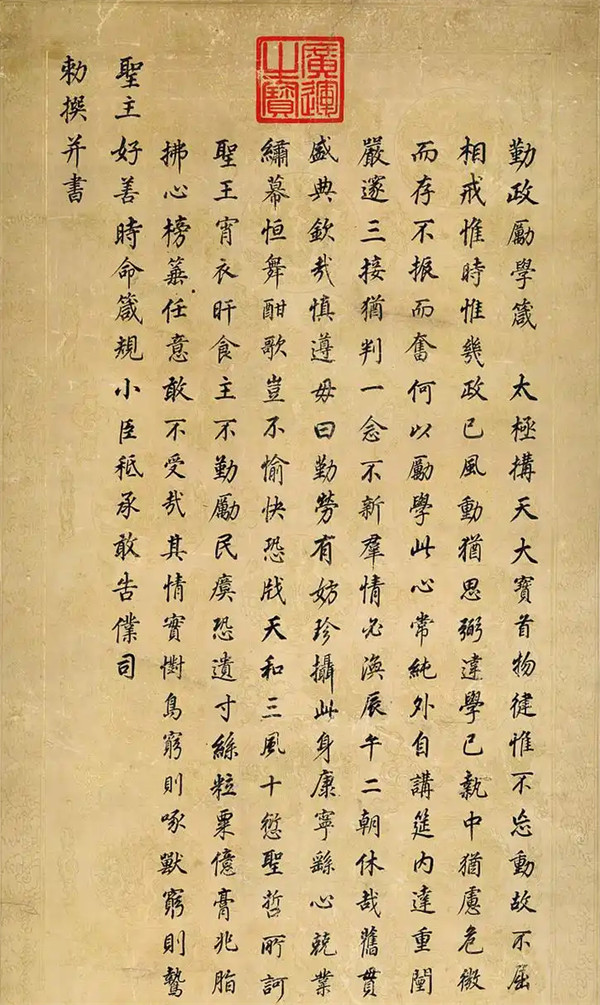 廣運之寶
勤政勵學箴 太極搆天大寶首物健惟不忘動故不屈
相戒惟時惟幾政已風動猶思弼違學已執中猶慮危微
而存不振而奮何以勵學此心常純外自講筵內達重闈
嚴邃三接猶判一念不新羣情必渙辰午二朝休哉舊貫
盛典欽哉慎遵毋曰勤勞有妨珍攝此身康寧繇心兢業
繡幕恒舞酣歌豈不愉快恐戕天和三風十愆聖哲所訶
聖王宵衣旰食主不勤勵民虞恐遺寸絲粒粟億膏兆脂
拂心榜箠任意敢不受哉其情實懟鳥窮則啄獸窮則鷙
聖主好善時命箴規小臣秪承敢告僕司
勅撰并書